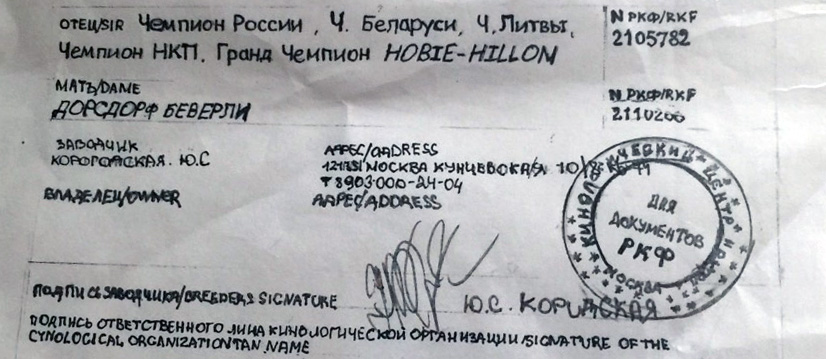 ОТЕЦ/SIR Чемпион России, Ч. Беларуси, Ч. Литвы,
Чемпион НКП. Гранд Чемпион HOBIE-HILLON
N РКФ/RKF
2105782
МАТЬ/DAME
ДОРСДОРФ БЕВЕРЛИ
N РКФ/RKF
ЗАВОДЧИК
Ю.С
АДРЕС/ADDRESS
МОСКВА
Т 8903-000-24-04
ВЛАДЕЛЕЦ/OWNER
АДРЕС/ADDRESS
КИНОЛОГИЧЕСКИЙ ЦЕНТР
ДЛЯ
ДОКУМЕНТОВ
РКФ
МОСКВА
ПОДПИСЬ ЗАВОДЧИКА/BREEDER,S SIGNATURE
Ю.С.
ПОДПИСЬ ОТВЕТСТВЕННОГО ЛИЦА КИНОЛОГИЧЕСКОЙ ОРГАНИЗАЦИИ/SIGNATURE OF THE
CYNOLOGICAL ORGANIZATION NAME